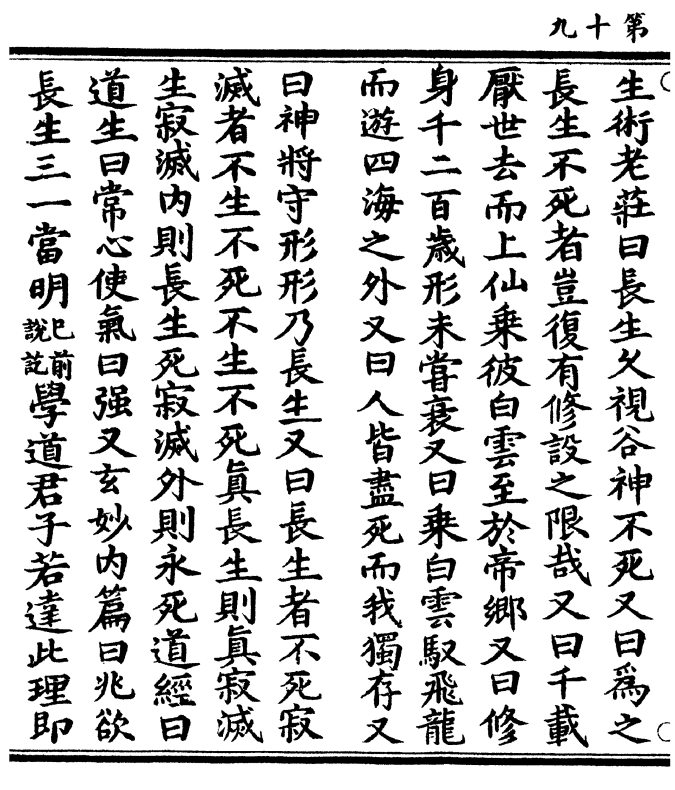 第十九
生術老莊曰長生久視谷神不死又曰爲之
長生不死者豈復有修設之限哉又曰千載
厭世去而上仙乗彼白雲至於帝鄉又曰修
身千二百歳形未嘗衰又曰乗白雲馭飛龍
而遊四海之外又曰人皆盡死而我獨存又
曰神將守形形乃長生又曰長生者不死寂
滅者不生不死不生不死眞長生則眞寂滅
生寂滅内則長生死寂滅外則永死道經曰
道生曰常心使氣曰强又玄妙内篇曰兆欲
長生三一當明已前說訖學道君子若達此理即